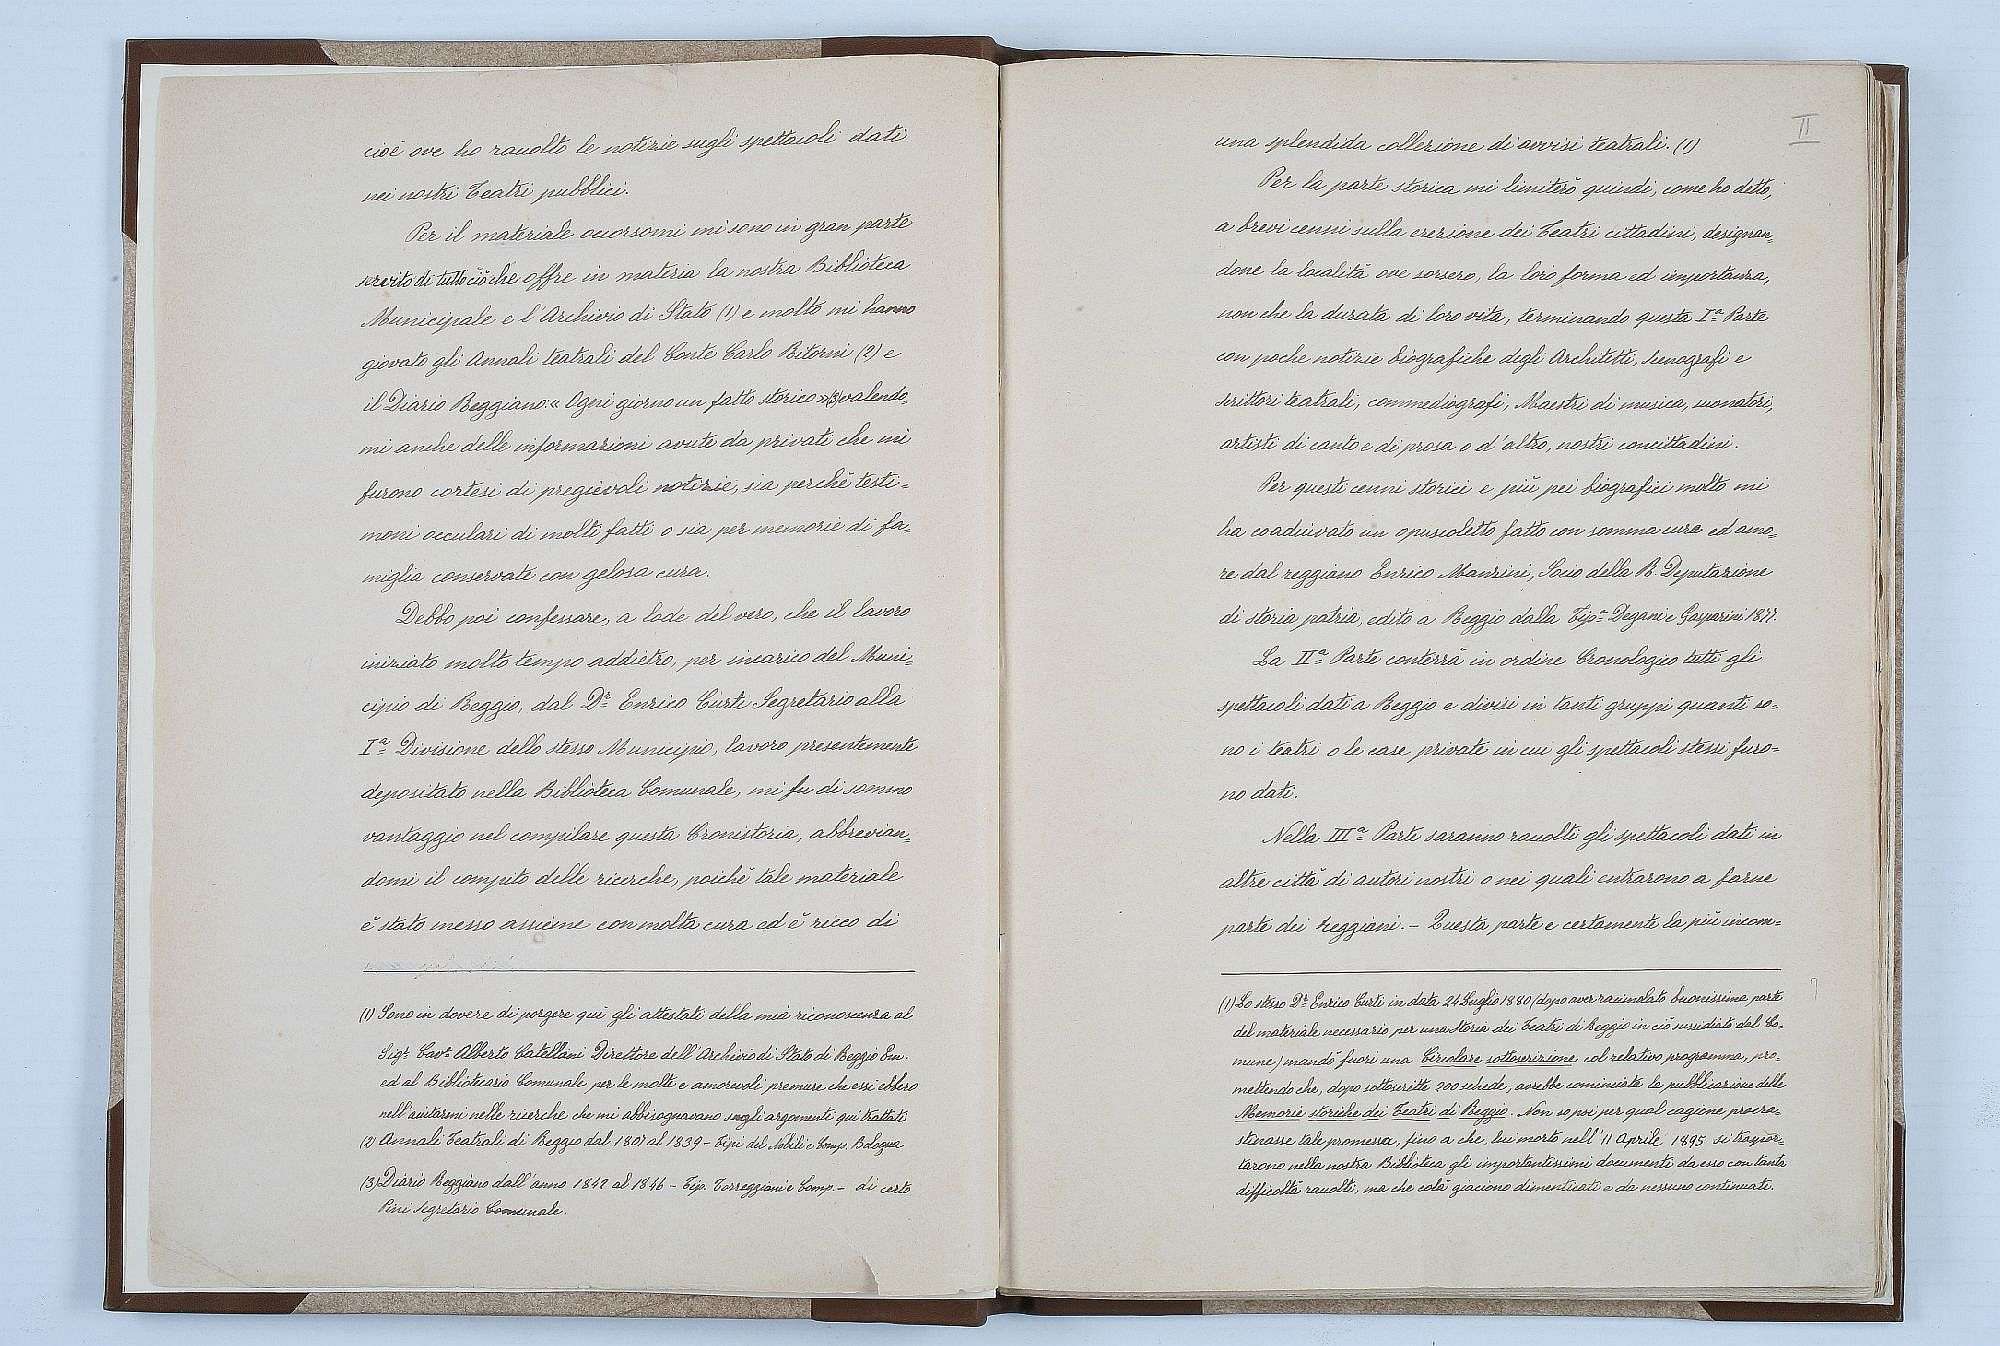 cioè ove ho raccolto le notizie sugli spettacoli dati
nei nostri Teatri pubblici.
Per il materiale occorsomi mi sono in gran parte
servito di tutto ciò che offre in materia la nostra Biblioteca
Municipale e l'Archivio di Stato (1) e molto mi hanno
giovato gli Annali teatrali del Conte Carlo Ritorni (2) e
il Diario Reggiano: « Ogni giorno un fatto storico » (3) valendo,
mi anche delle informazioni avute da privati che mi
furono cortesi di pregievoli notizie, sia perchè testi=
moni occulari di molti fatti o sia per memorie di fa=
miglia conservate con gelosa cura.
Debbo poi confessare, a lode del vero, che il lavoro
iniziato molto tempo addietro, per incarico del Muni=
cipio di Reggio, dal Dr Enrico Curti Segretario alla
Iª Divisione dello stesso Municipio, lavoro presentemente
depositato nella Biblioteca Comunale, mi fu di sommo
vantaggio nel compilare questa Cronistoria, abbrevian=
domi il compito delle ricerche, poichè tale materiale
è stato messo assieme con molta cura ed è ricco di
(1) Sono in dovere di porgere quì gli attestati della mia riconoscenza al
Sigr Cavr Alberto Catellani Direttore dell'Archivio di Stato di Reggio Em.
ed al Bibliotecario Comunale per le molte e amorevoli premure che essi ebbero
nell'aiutarmi nelle ricerche che mi abbisognavano sugli argomenti qui trattati
(2) Annali Teatrali di Reggio dal 1807 al 1839 - Tipi del Nobili e Comp. Bologna
(3) Diario Reggiano dall'anno 1842 al 1846 - Tip. Torreggiani e Comp. - di certo
Pini Segretario Comunale.
II
una splendida collezione di avvisi teatrali. (1)
Per la parte storica mi limiterò quindi, come ho detto,
a brevi cenni sulla erezione dei Teatri cittadini, designan=
done la località ove sorsero, la loro forma ed importanza,
non che la durata di loro vita, terminando questa Iª Parte
con poche notizie biografiche degli Architetti, Scenografi e
scrittori teatrali, commediografi, Maestri di musica, suonatori,
artisti di canto e di prosa o d'altro, nostri concittadini.
Per questi cenni storici e più pei biografici molto mi
ha coadiuvato un opuscoletto fatto con somma cura ed amo=
re dal reggiano Enrico Manzini, Socio della R. Deputazione
di storia patria, edito a Reggio dalla Tipª Degani e Gasparini 1877.
La IIª Parte conterrà in ordine Cronologico tutti gli
spettacoli dati a Reggio e divisi in tanti gruppi quanti so=
no i teatri o le case private in cui gli spettacoli stessi furo=
no dati.
Nella IIIª Parte saranno raccolti gli spettacoli dati in
altre città di autori nostri o nei quali entrarono a farne
parte dei Reggiani. - Questa parte e certamente la più incom=
(1) Lo stesso Dr Enrico Curti in data 24 Luglio 1880 (dopo aver racimolato buonissima parte
del materiale necessario per una Storia dei Teatri di Reggio in ciò sussidiato dal Co=
mune) mandò fuori una Circolare sottoscrizione col relativo programma, pro=
mettendo che, dopo sottoscritte 200 schede, avrebbe cominciata la pubblicazione delle
Memorie storiche dei Teatri di Reggio. Non so poi per qual cagione procra=
stinasse tale promessa, fino a che, lui morto nell'11 Aprile 1895 si traspor=
tarono nella nostra Biblioteca gli importantissimi documenti da esso con tanta
difficoltà raccolti, ma che colà giaciono dimenticati e da nessuno continuati.